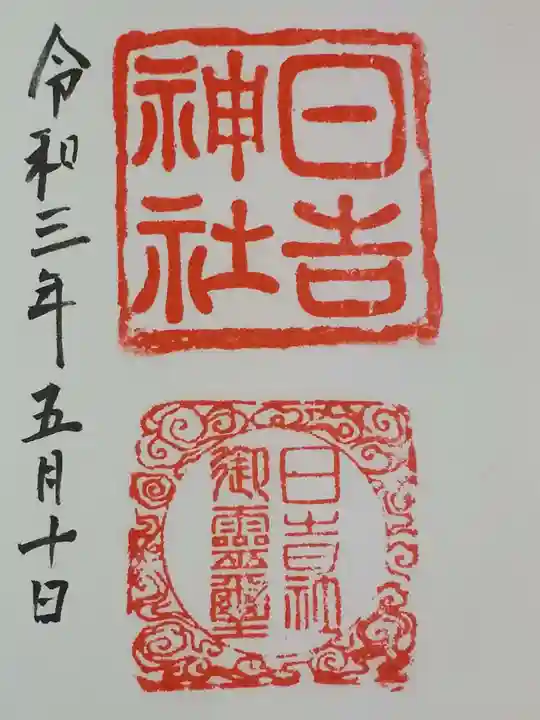 日吉
神社
日吉社
御霊璽
令和三年五月十日